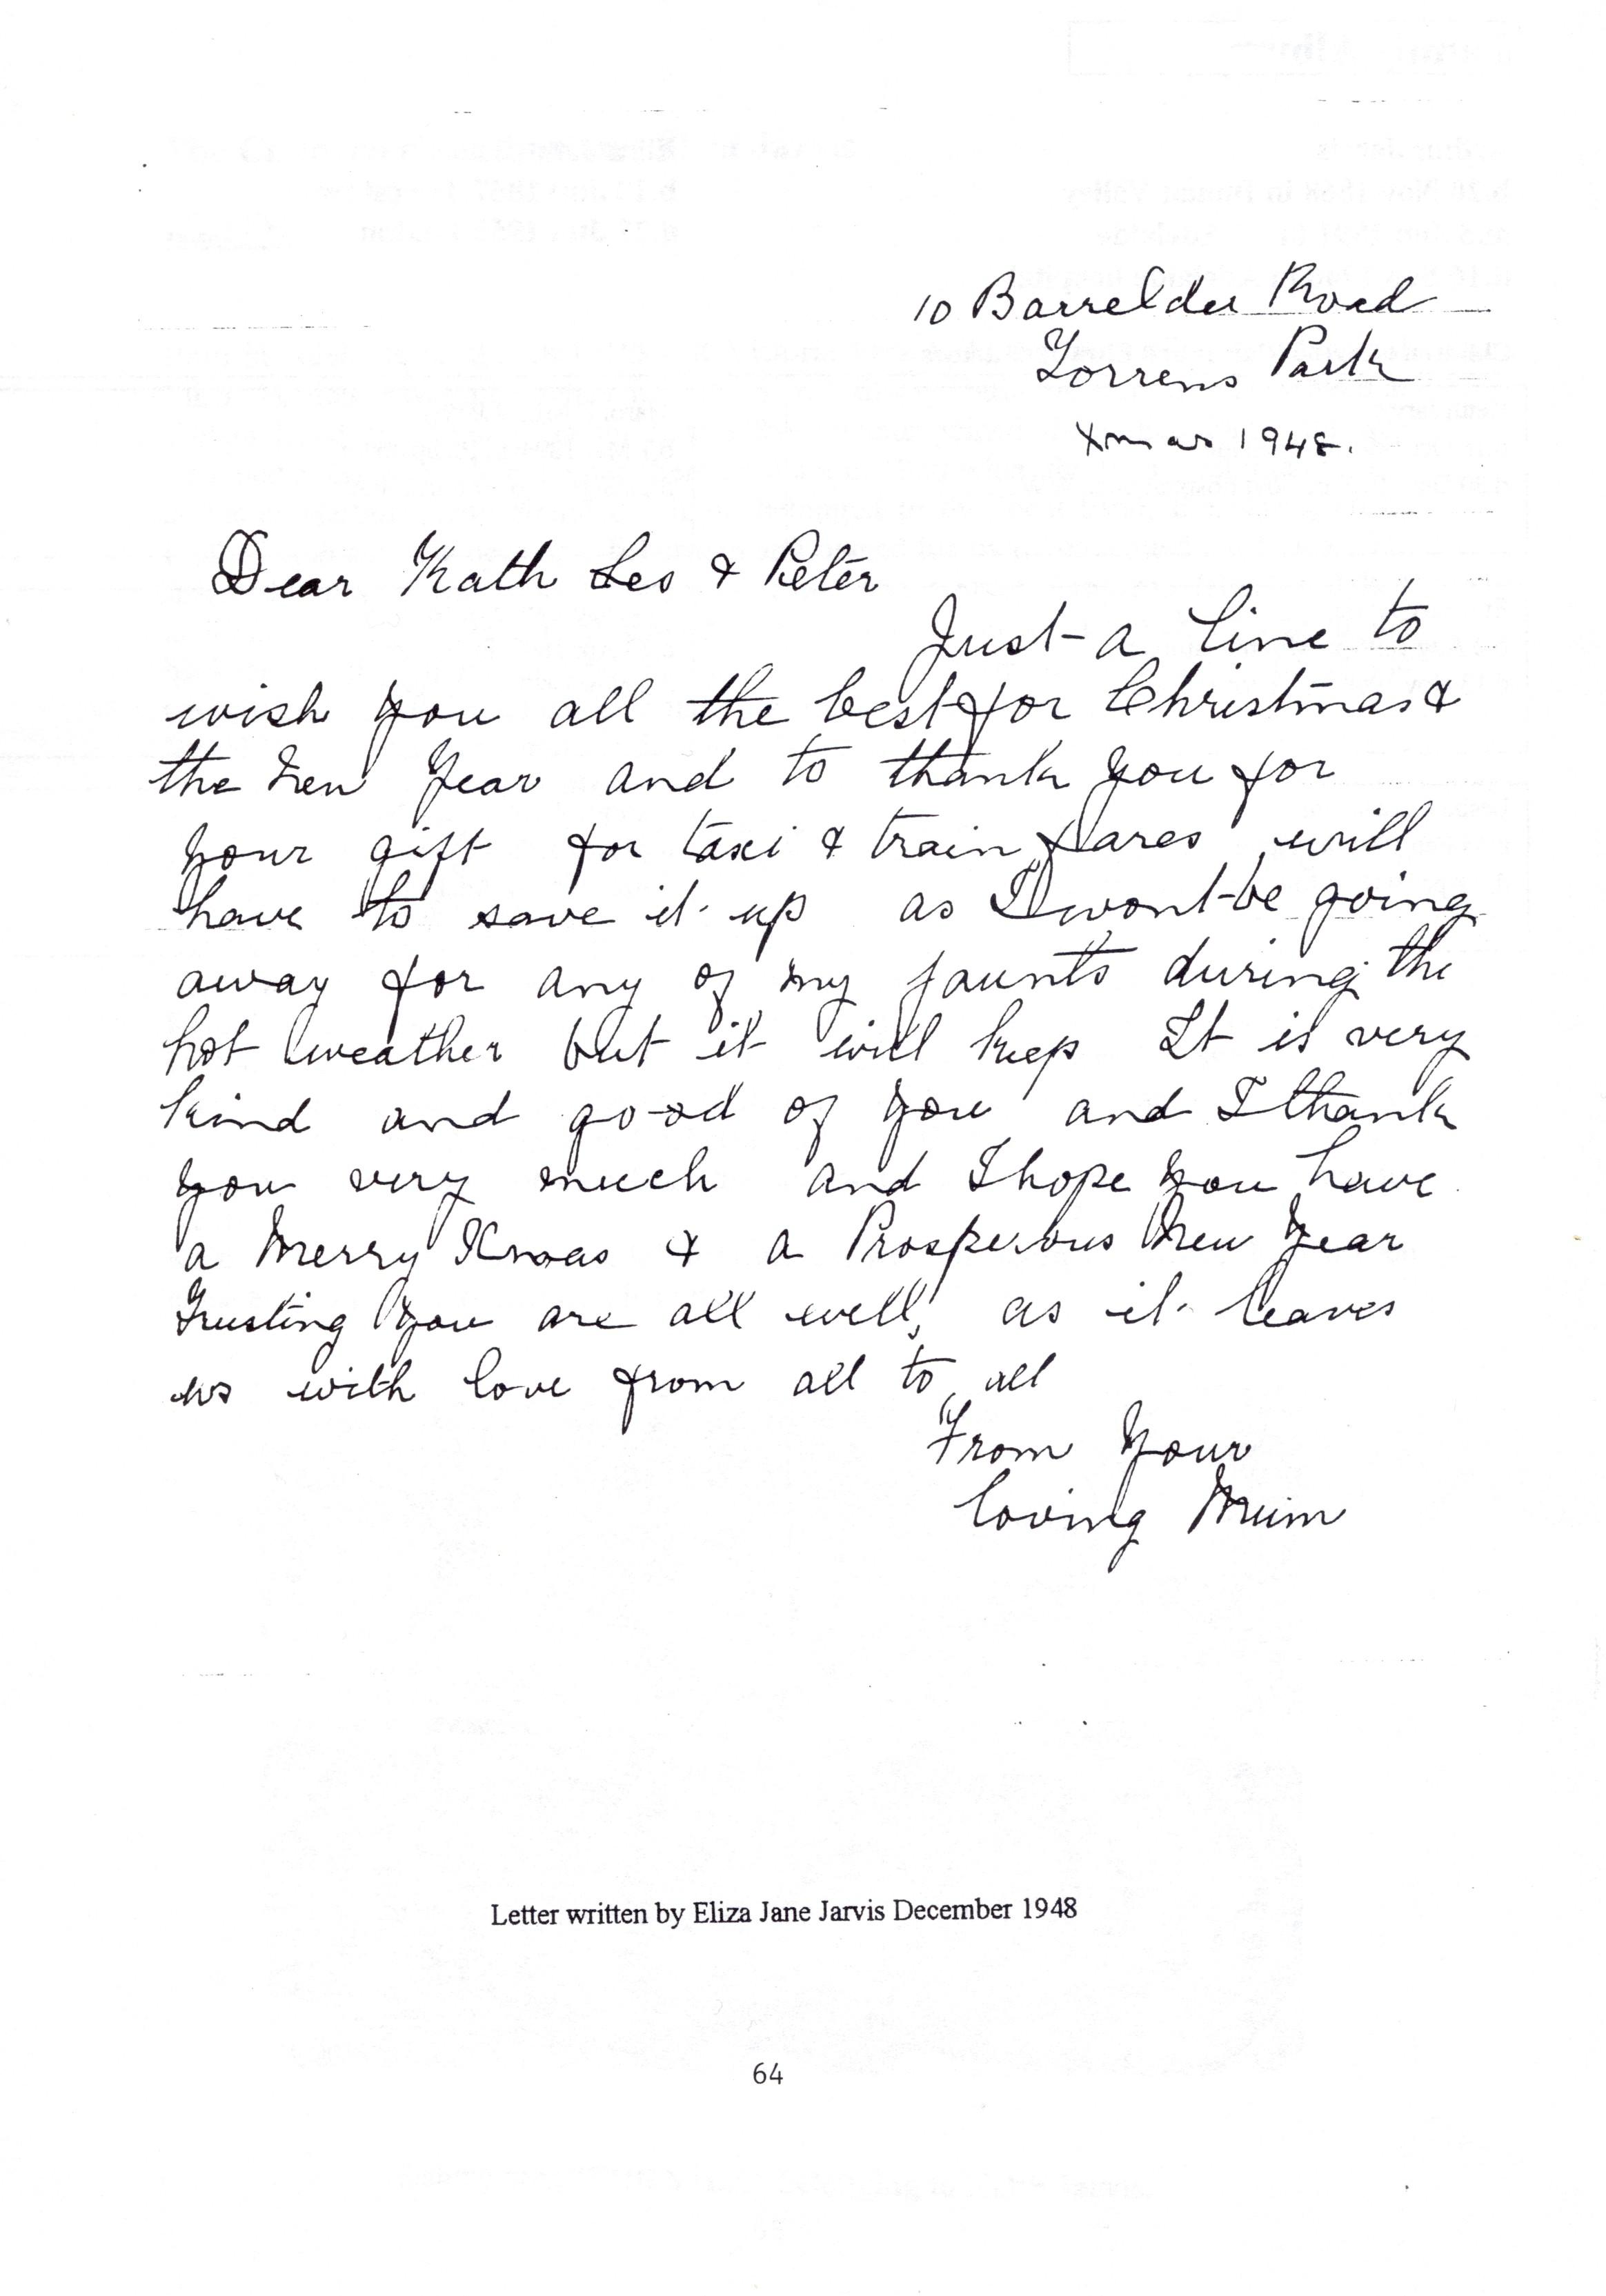 10 Barrelder Road
Torrens Park
Xmas 1948.
Dear Kath Les & Peter
Just a line to
wish you all the best for Christmas &
the New Year and to thank you for
your gift for taxi & train fares will
have to save it up as I wont be going
away for any of my jaunts during the
hot weather but it will keep It is very
kind and good of you and I thank
you very much and I hope you have
a Merry Xmas & a Prosperous New Year
Trusting you are all well, as it leaves
us with love from all to all
From Your
loving Mum
Letter written by Eliza Jane Jarvis December 1948
64